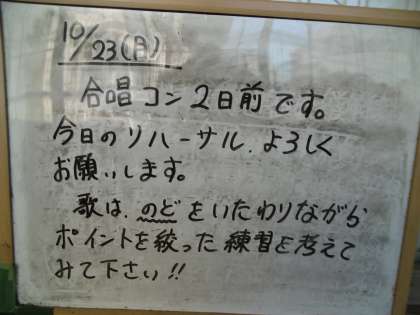 10/23(月)
合唱コン2日前です。
今日のリハーサル、よろしく
お願いします。
歌は、のどをいたわりながら
ポイントを絞った練習を考えて
みて下さい!!